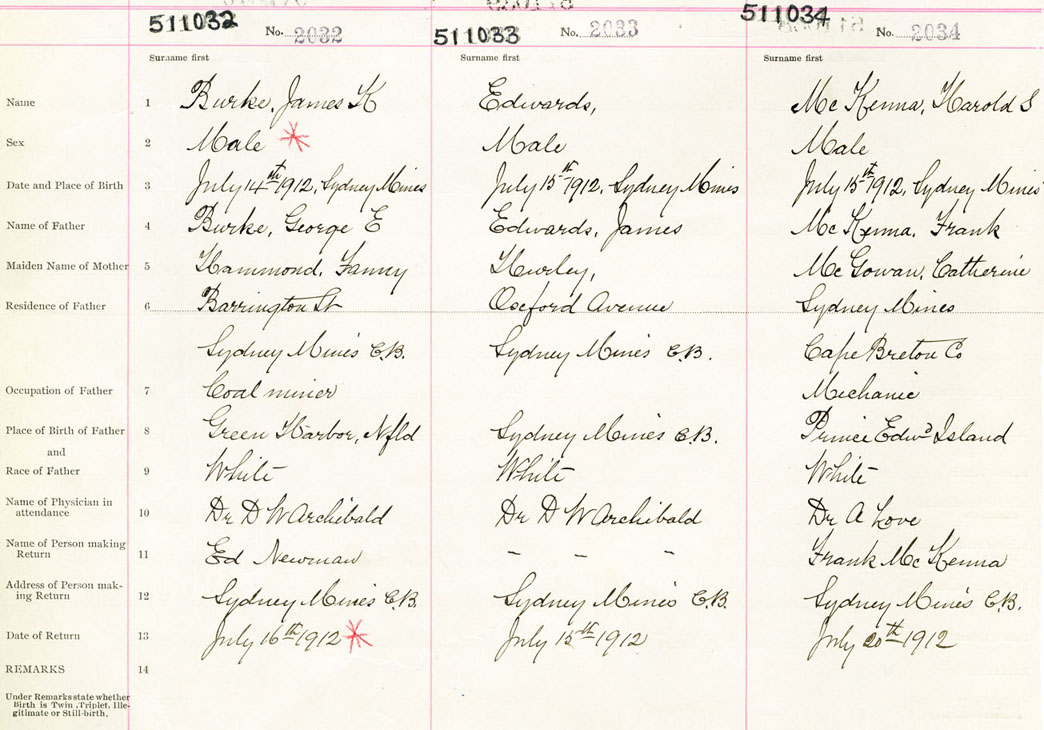 511032 No. 2032 511033 No. 2033 511034 No. 2034
Surname first Surname first Surname first
Name 1 Burke, James K Edwards, Mc Kenna, Harold S
Sex 2 Male Male Male
Date and Place of Birth 3 July 14th 1912, Sydney Mines July 15th 1912, Sydney Mines July 15th 1912, Sydney Mines
Name of Father 4 Burke, George E Edwards, James Mc Kenna, Frank
Maiden Name of Mother 5 Hammond, Fanny Hurley, Mc Gowan, Catherine
Residence of Father 6 Barrington St Oxford Avenue Sydney Mines
Sydney Mines C.B. Sydney Mines C.B. Cape Breton Co
Occupation of Father 7 Coal miner Mechanic
Place of Birth of Father 8 Green Harbor, Nfld Sydney Mines C.B. Prince Edwd Island
and
Race of Father 9 White White White
Name of Physician in
attendance 10 Dr D W Archibald Dr D W Archibald Dr A Love
Name of Person making
Return 11 Ed Newman - - - Frank Mc Kenna
Address of Person mak-
ing Return 12 Sydney Mines C.B. Sydney Mines C.B. Sydney Mines C.B.
Date of Return 13 July 16th 1912 July 15th 1912 July 20th 1912
REMARKS 14
Under Remarks state whether
Birth is Twin, Triplet, Ille-
gitimate or Still-birth.